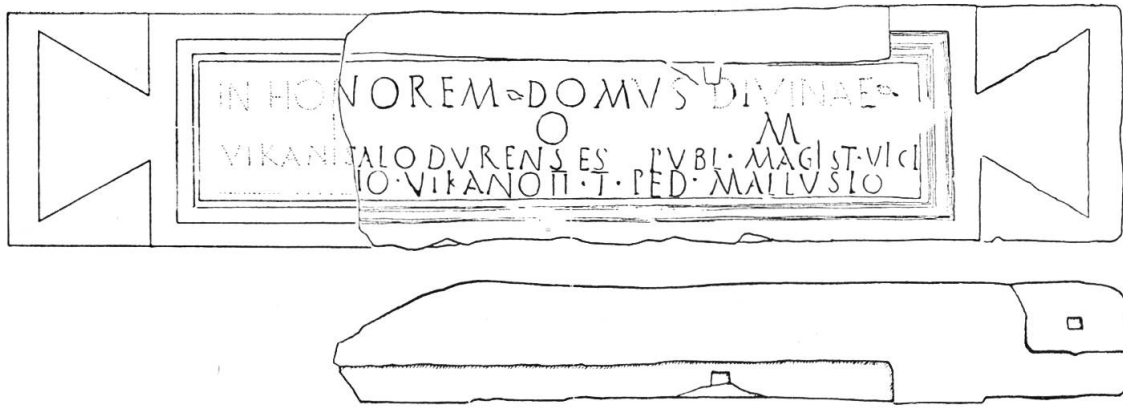 IN HONOREM DOMVS DIVINAE
O M
VIKANI SALODVRENSES PVBL · MAGIST · VICI
IO · VIKANO II · T · PED · MALLVSIO